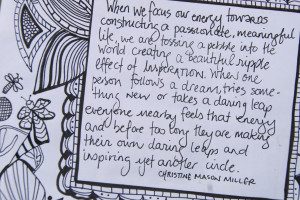 When we focus our energy towards
constructing a passionate, meaningful
life, we are tossing a pebble into the
world creating a beautiful ripple
effect of inspiration. When one
person follows a dream, tries some-
thing new or takes a daring leap
everyone nearby feels that energy
and before too long they are making
their own daring leaps and
inspiring yet another circle.
CHRISTINE MASON MILLER